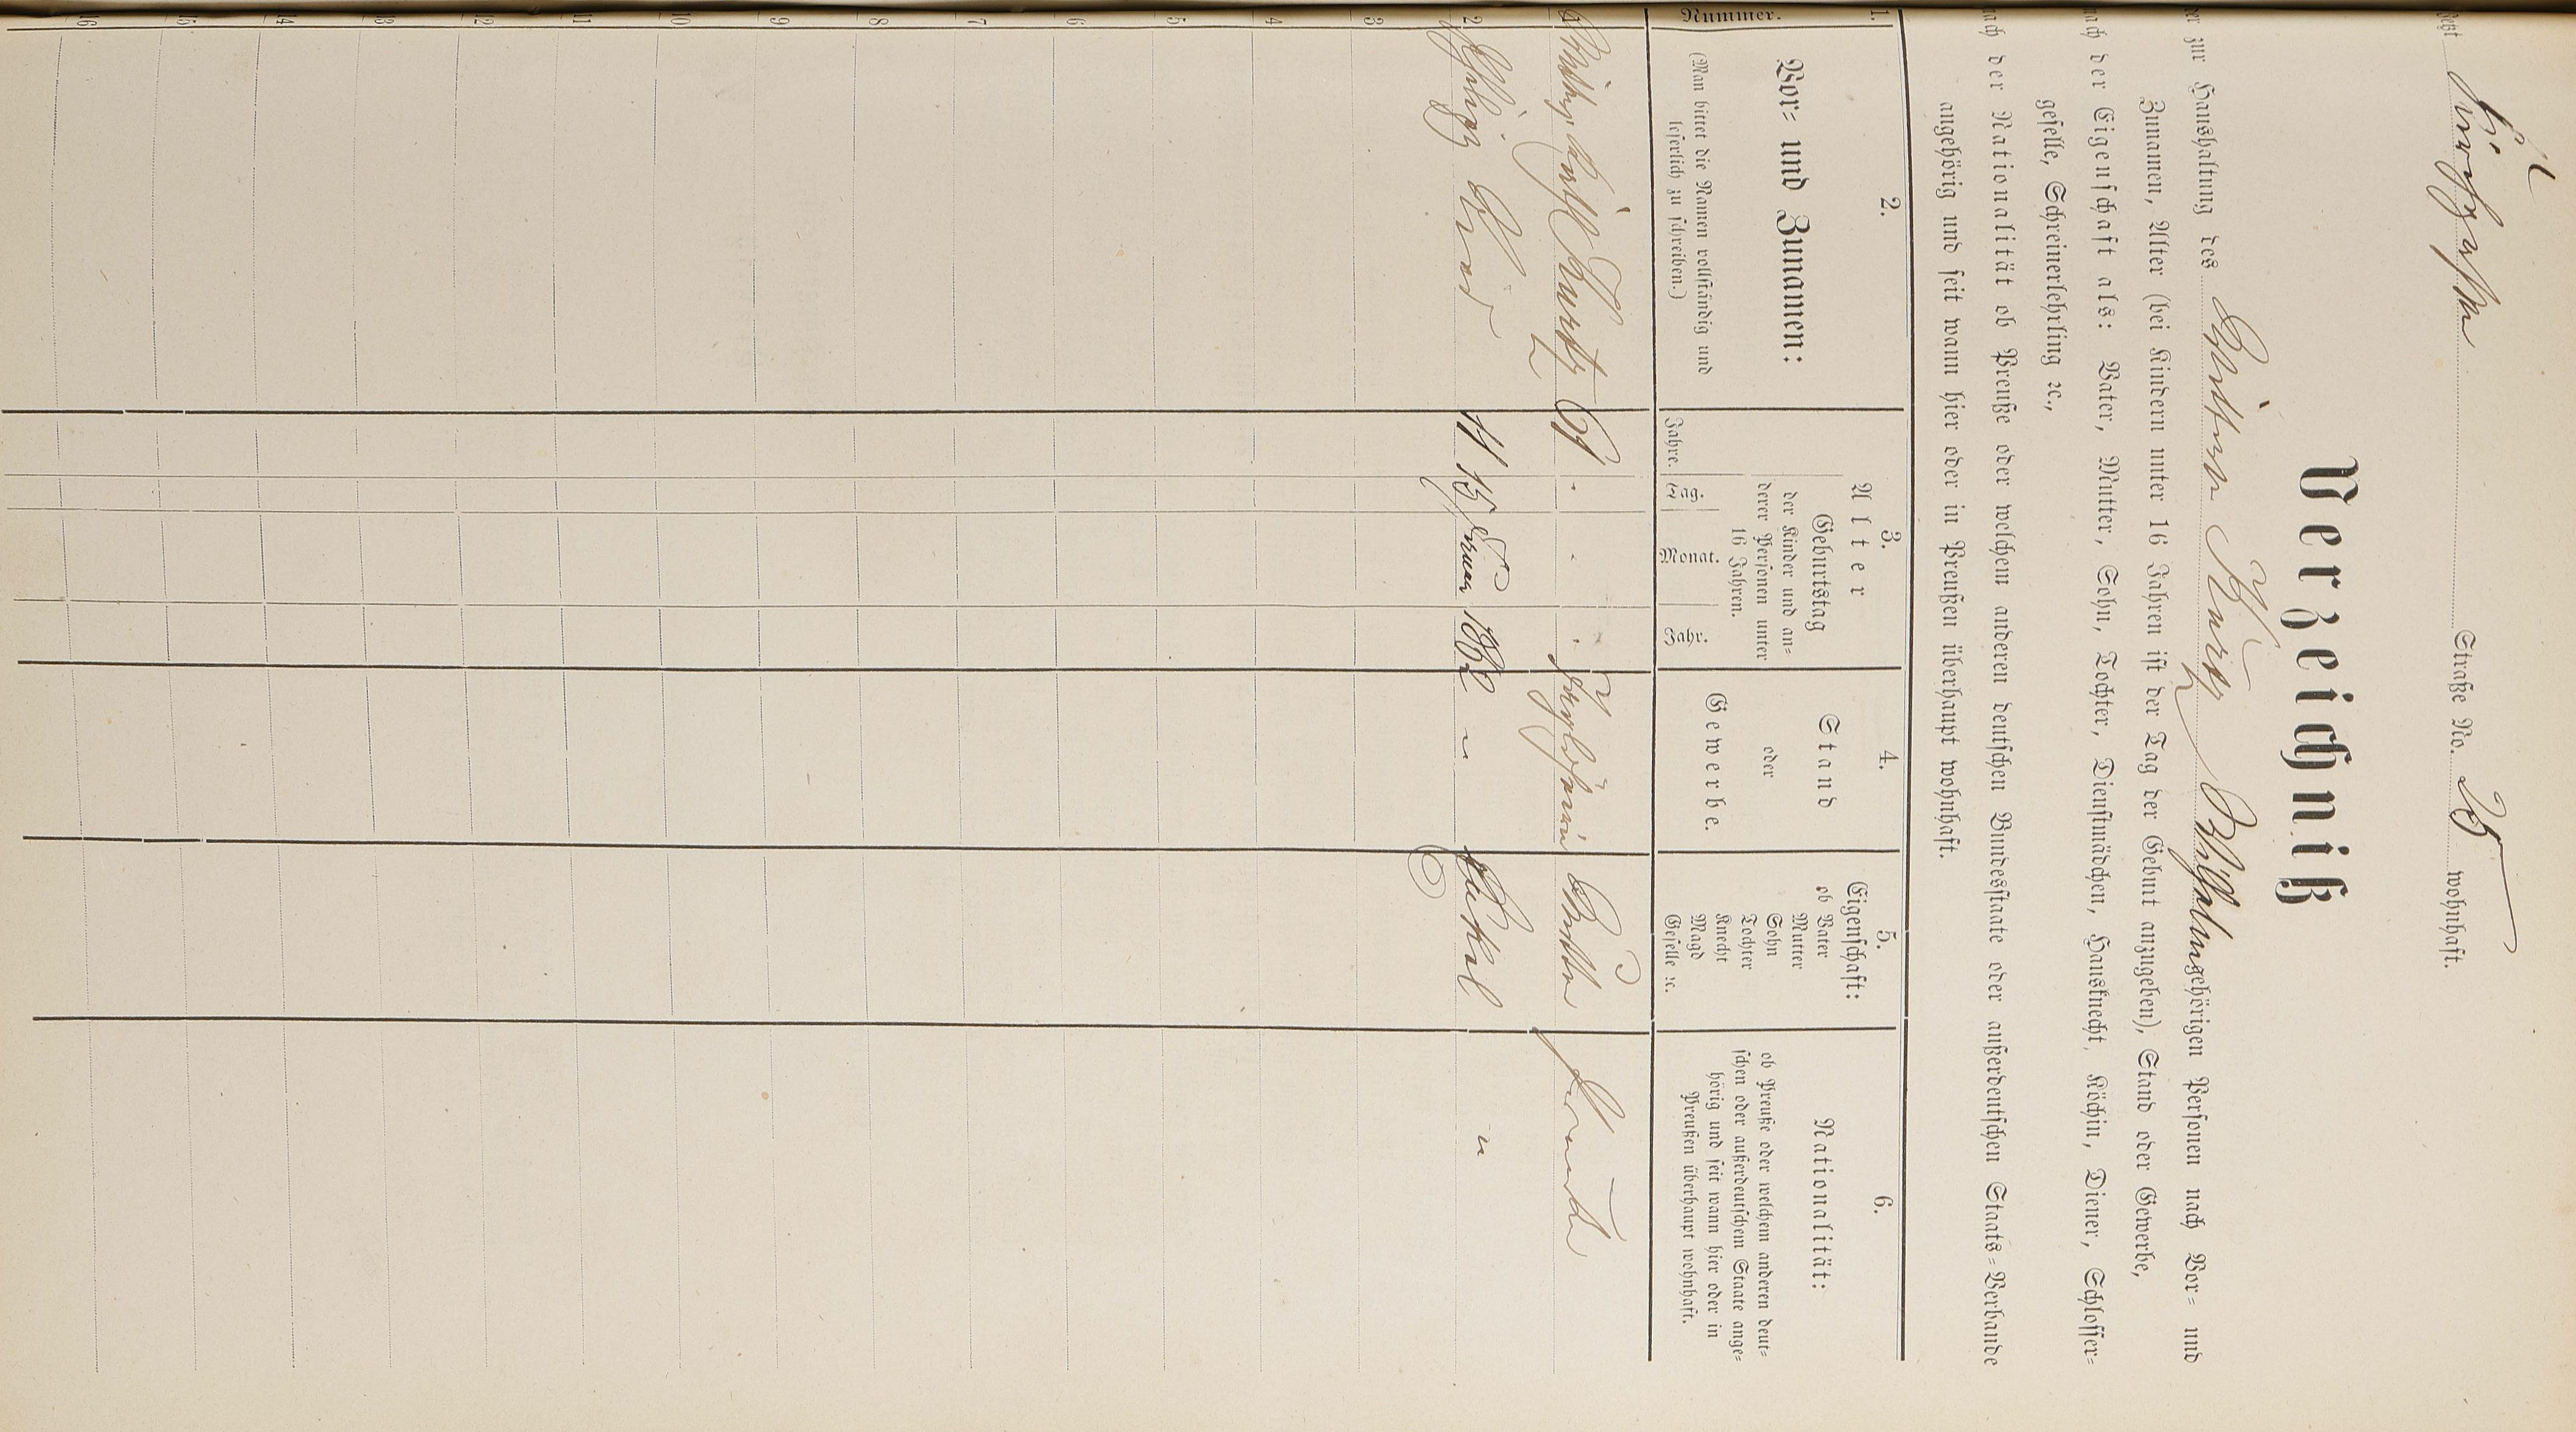 jetzt Kirchgasse Straße No. 25 wohnhaft.
Verzeichniß
der zur Haushaltung des Kurtz, Wilhelm gehörigen Personen nach Vor- und
Zunamen, Alter (bei Kindern unter 16 Jahren ist der Tag der Geburt anzugeben), Stand oder Gewerbe,
nach der Eigenschaft als: Vater, Mutter, Sohn, Tochter, Dienstmädchen, Hausknecht, Köchin, Diener, Schlosser-
geselle, Schreinerlehrling ꝛc.,
nach der Nationalität ob Preuße oder welchem anderen deutschen Bundesstaate oder außerdeutschen Staats-Verbande
angehörig und seit wann hier oder in Preußen überhaupt wohnhaft.
1. 2. 3. 4. 5. 6.
Nummer.
Vor- und Zunamen:
(Man bittet die Namen vollständig und
leserlich zu schreiben.)
Alter
Jahre.
Geburtstag
der Kinder und an-
derer Personen unter
16 Jahren.
Tag. Monat. Jahr.
Stand
oder
Gewerbe.
Eigenschaft:
ob Vater
Mutter
Sohn
Tochter
Knecht
Magd
Geselle ꝛc.
Nationalität:
ob Preuße oder welchem anderen deut-
schen oder außerdeutschem Staate ange-
hörig und seit wann hier oder in
Preußen überhaupt wohnhaft.
Kurtz 61 . . . Taglöhnerin
2 Philipp 11 15 1862 " Enkel "
3
4
5
6
7
8
9
10
11
12
13
14
15
16